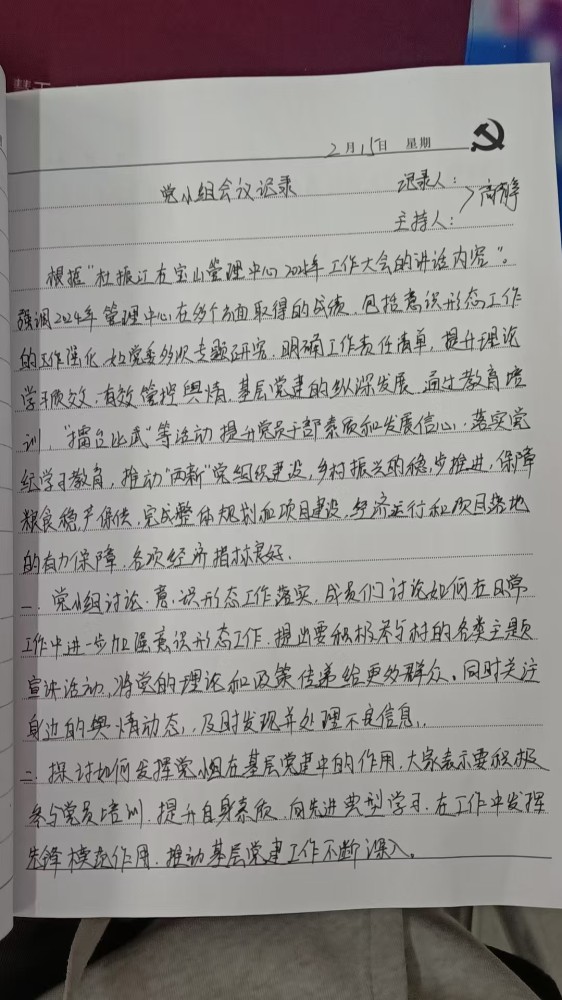 2月15日 星期
党小组会议记录 记录人：
主持人：
根据“杜振江在宝山管理中心2024年工作大会的讲话内容”。
强调2024年管理中心在多个方面取得的成绩，包括意识形态工作
的工作强化，如党委多次专题研究，明确工作责任清单，提升理论
学习质效，有效管控舆情，基层党建的纵深发展，通过教育培
训，“擂台比武”等活动提升党员干部素质和发展信心，落实党
纪学习教育，推动“两新”党组织建设，乡村振兴的稳步推进，保障
粮食稳产保供，完成整体规划和项目建设，经济运行和项目落地
的有力保障，各项经济指标良好。
一、党小组讨论，意识形态工作落实，成员们讨论如何在日常
工作中进一步加强意识形态工作，提出要积极参与村的各类主题
宣讲活动，将党的理论和政策传递给更多群众。同时关注
身边的舆情动态，及时发现并处理不良信息。
二、探讨如何发挥党小组在基层党建中的作用，大家表示要积极
参与党员培训，提升自身素质，向先进典型学习，在工作中发挥
先锋模范作用，推动基层党建工作不断深入。